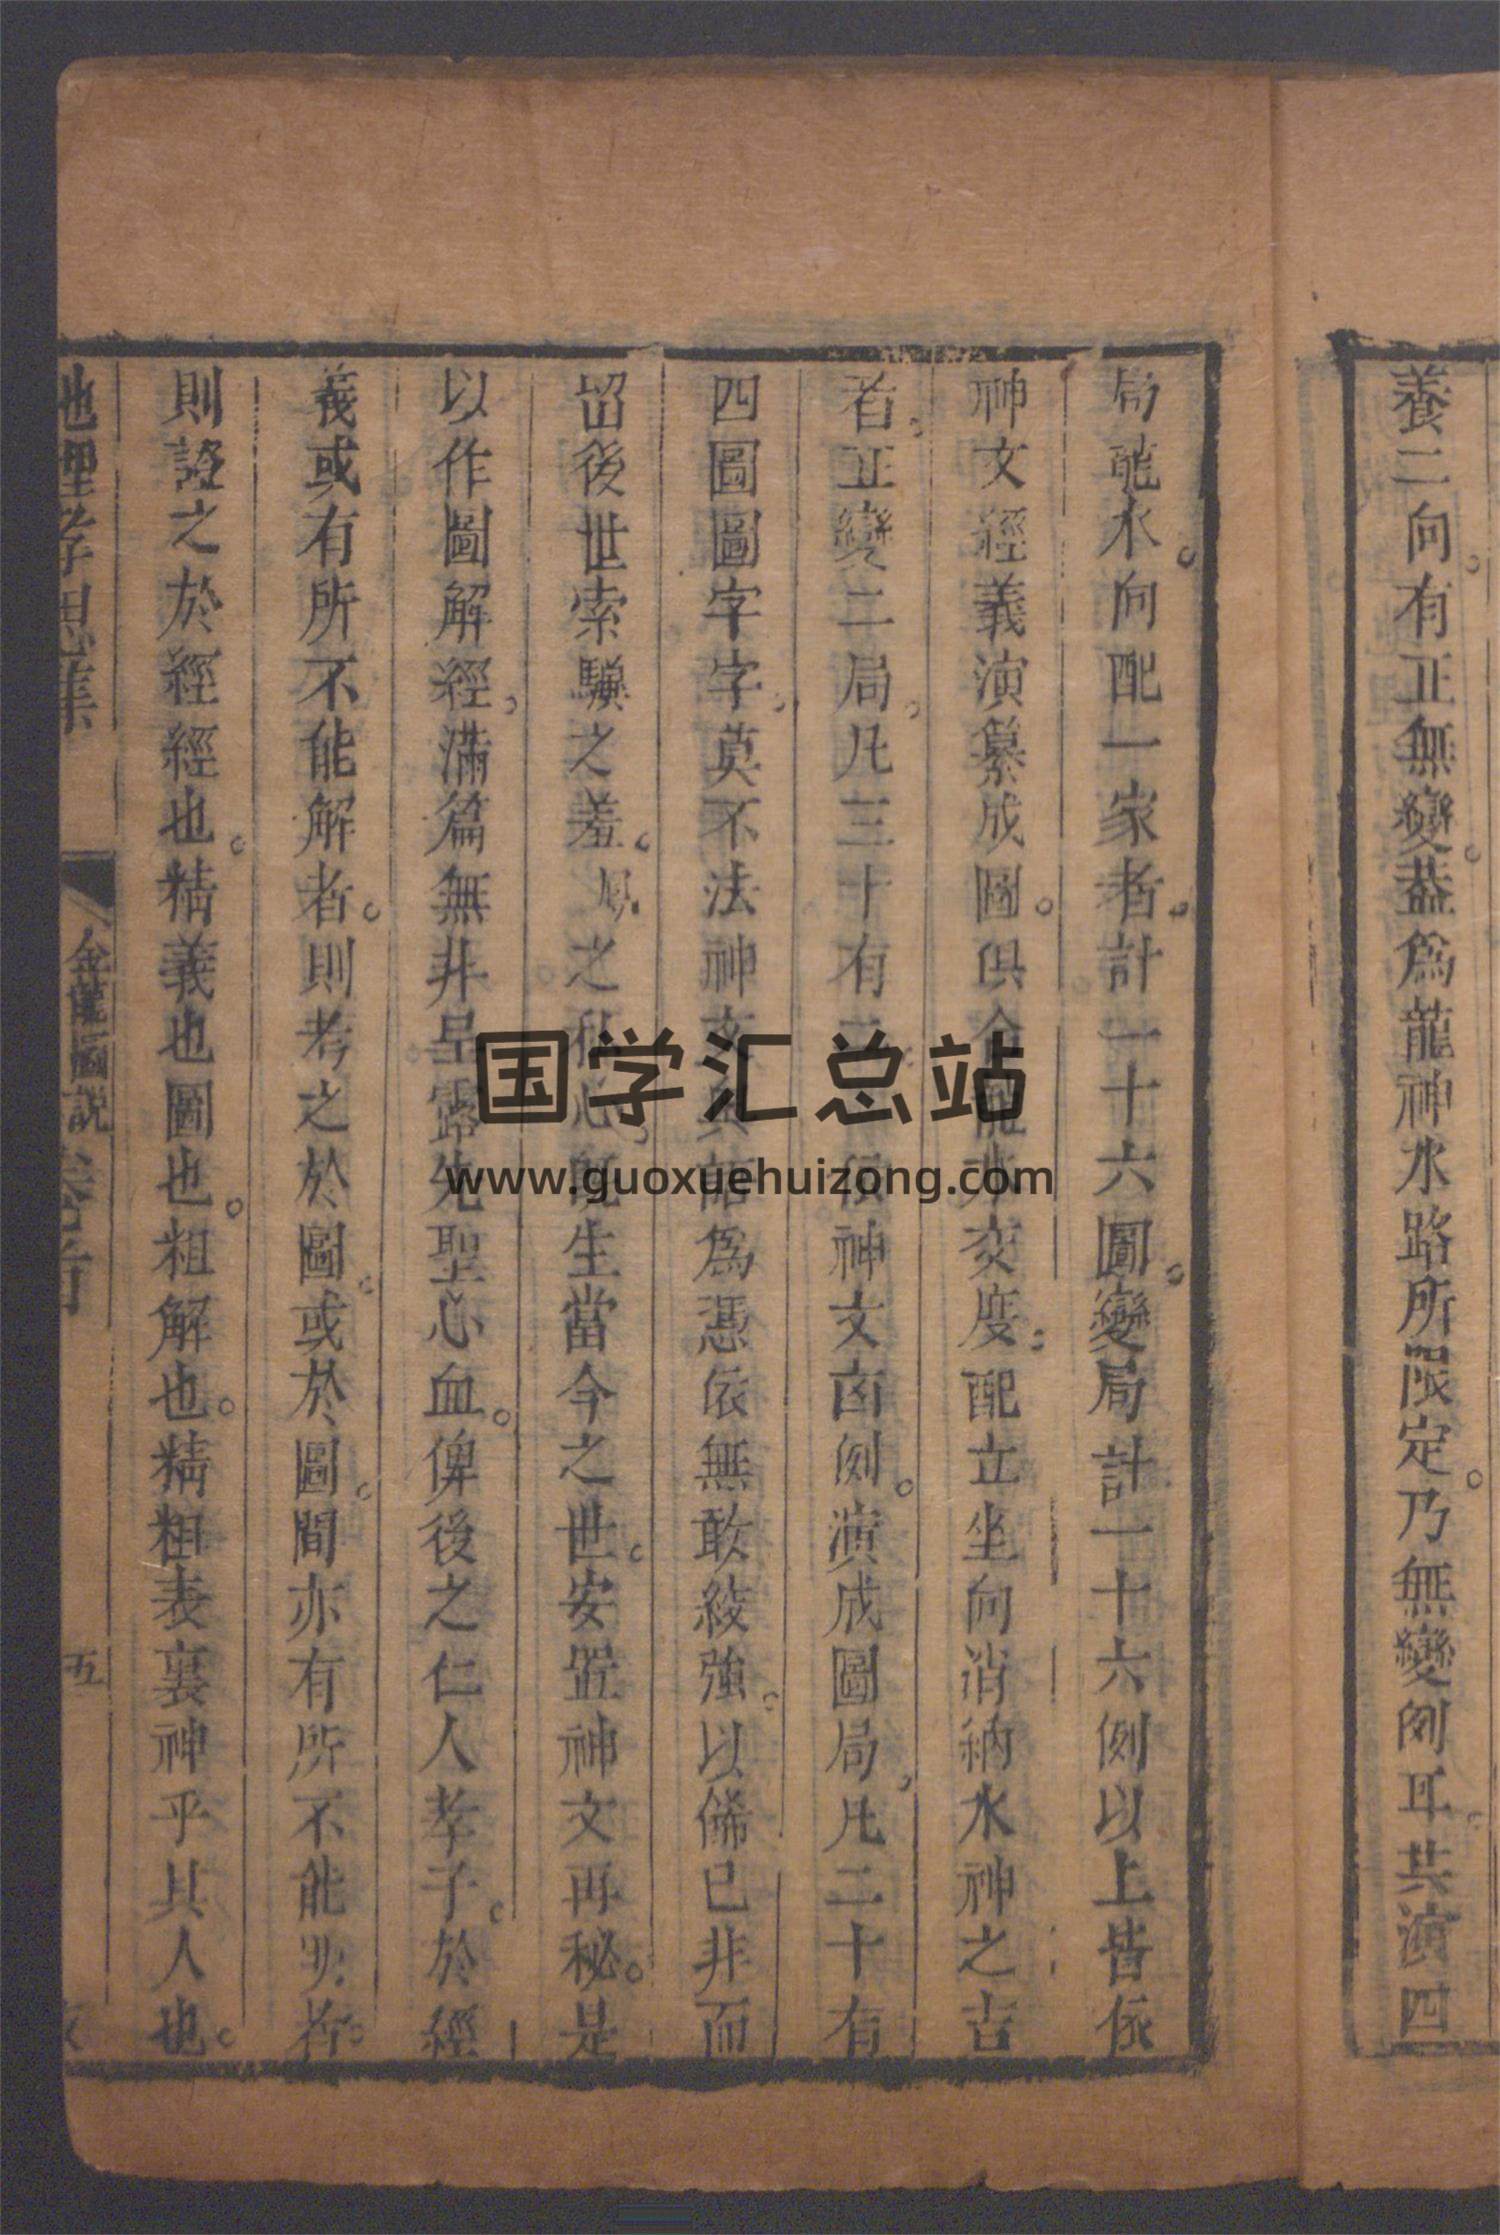 養二向有正無變葢爲龍神水路所限定乃無變例耳共演四
局龍水向配一家者計一十六圖變局計一十六例以上皆依
神文經義演纂成圖俱金龍非交度配立坐向消納水神之吉
者正變二局凡三十有神文例演成圖局凡二十有
四圖圖字字莫不法神文爲憑依無敢絞強以俙已非而
留後世索驥之羞之私心旣生當今之世安置神文再秘是
以作圖解經滿篇無非呈露先聖心血俾後之仁人孝子於經
義或有所不能解者則考之於圖或於圖間亦有所不能明者
則證之於經經也精義也圖也粗解也精粗表裏神乎其人也
地理孝思集 金龍圖說 卷首 五
国学汇总站
www.guoxuehuizong.com